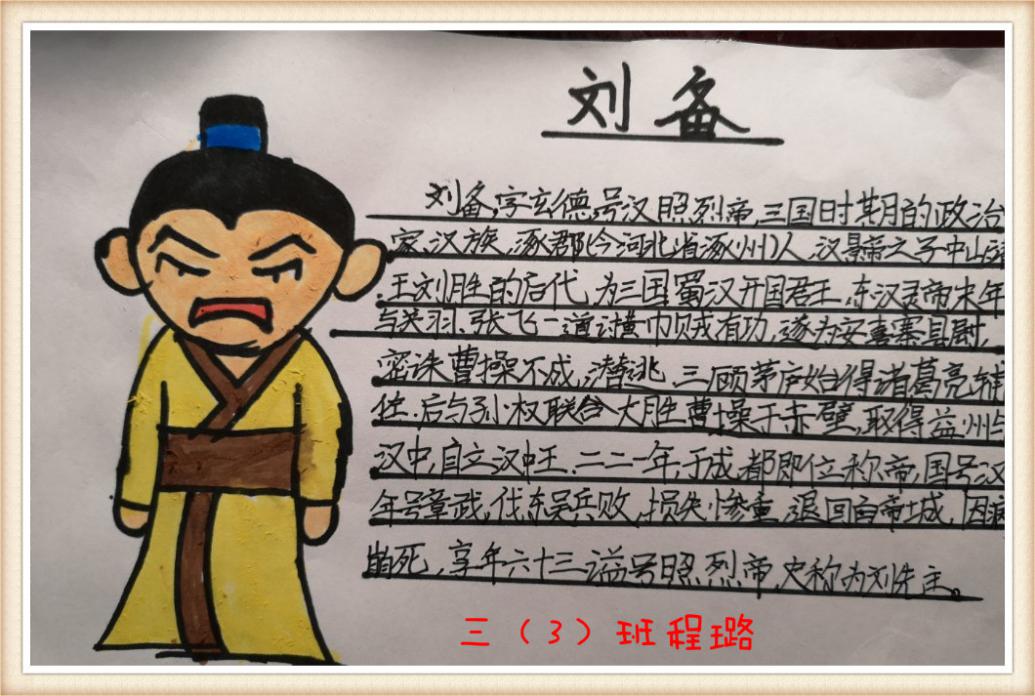 刘备
刘备,字玄德,号汉照烈帝,三国时期的政治
家,汉族,涿郡(今河北省涿州)人,汉景帝之号中山靖
王刘胜的后代,为三国蜀汉开国君王,东汉灵帝末年
与关羽、张飞一道讨黄巾贼有功,遂为安喜寨县尉,
密诛曹操不成,潜逃,三顾茅庐始得诸葛亮辅
位.后与孙权联合大胜曹操于赤壁,取得益州与
汉中,自立汉中王.二二一年,于成都即位称帝,国号汉
年号章武,伐东吴兵败,损失惨重,退回白帝城,因病
崩死,享年六十三,谥号照烈帝,史称为刘先主。
三(3)班程璐